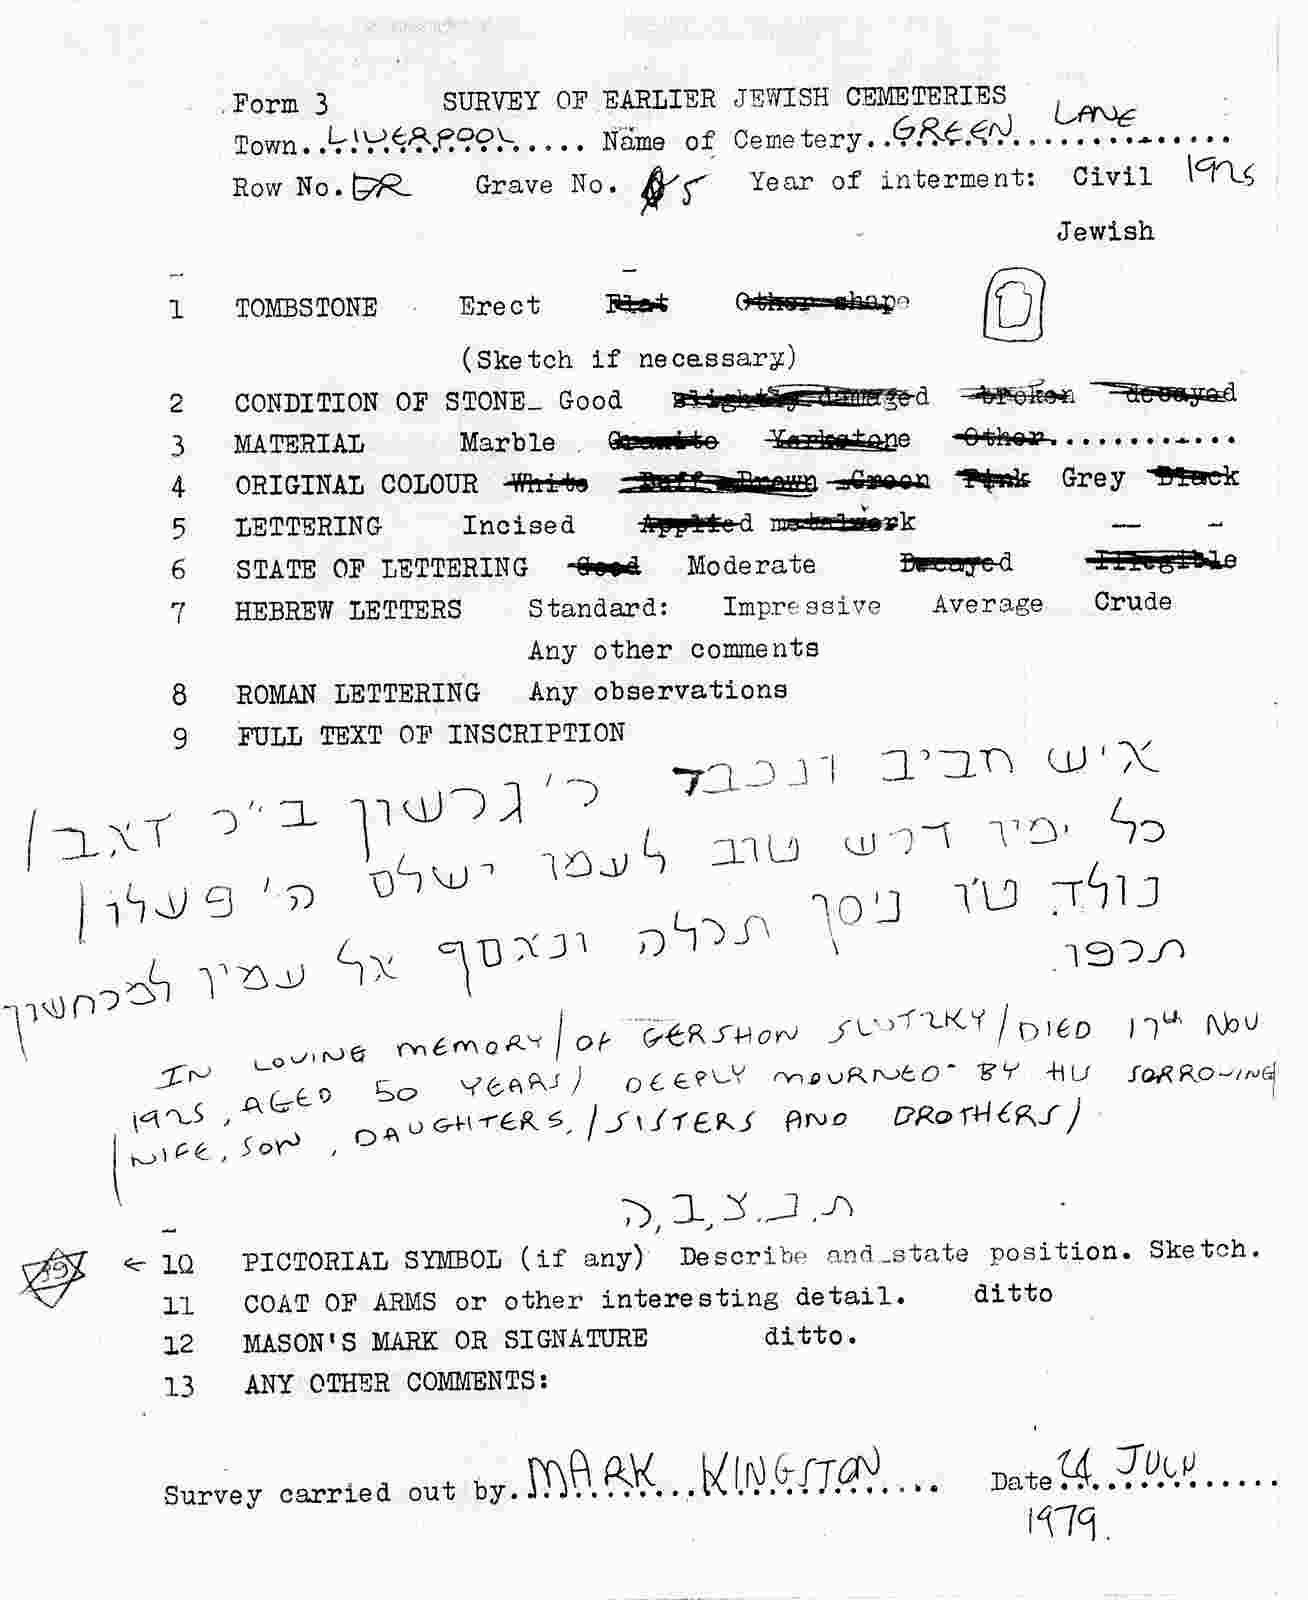 Form 3 SURVEY OF EARLIER JEWISH CEMETERIES
Town..LIVERPOOL..... Name of Cemetery..GREEN LANE
Row No. Grave No. 5 Year of interment: Civil 1925
Jewish
1 TOMBSTONE Erect Flat Other shape
(Sketch if necessary)
2 CONDITION OF STONE Good slightly damaged broken decayed
3 MATERIAL Marble Granite Yorkstone Other............
4 ORIGINAL COLOUR White Buff Brown Green Pink Grey Black
5 LETTERING Incised Applied metalwork
6 STATE OF LETTERING Good Moderate Decayed Illegible
7 HEBREW LETTERS Standard: Impressive Average Crude
Any other comments
8 ROMAN LETTERING Any observations
9 FULL TEXT OF INSCRIPTION
איש חביב ונכבד ר' גרשון ב"ר דאב/
כל ימיו דרש טוב לעמו ישלם ה' פעלו/
נולד ט'ו ניסן תרלה ונאסף אל עמיו למרחשון
תרפו.
IN LOVING MEMORY/OF GERSHON SLUTZKY/DIED 17th NOV
1925, AGED 50 YEARS/ DEEPLY MOURNED BY HIS SORROWING
/WIFE, SON, DAUGHTERS,/SISTERS AND BROTHERS/
ת.נ.צ.ב.ה
39 ← 10 PICTORIAL SYMBOL (if any) Describe and state position. Sketch.
11 COAT OF ARMS or other interesting detail. ditto
12 MASON'S MARK OR SIGNATURE ditto.
13 ANY OTHER COMMENTS:
Survey carried out by. MARK KINGSTON.... Date 24 JULY
1979.